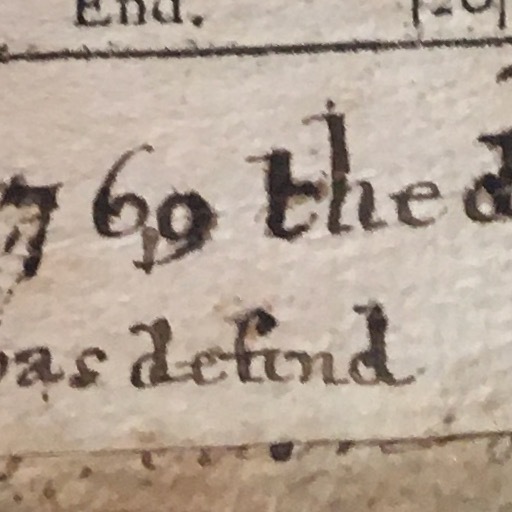 End.
769 the d
as defind